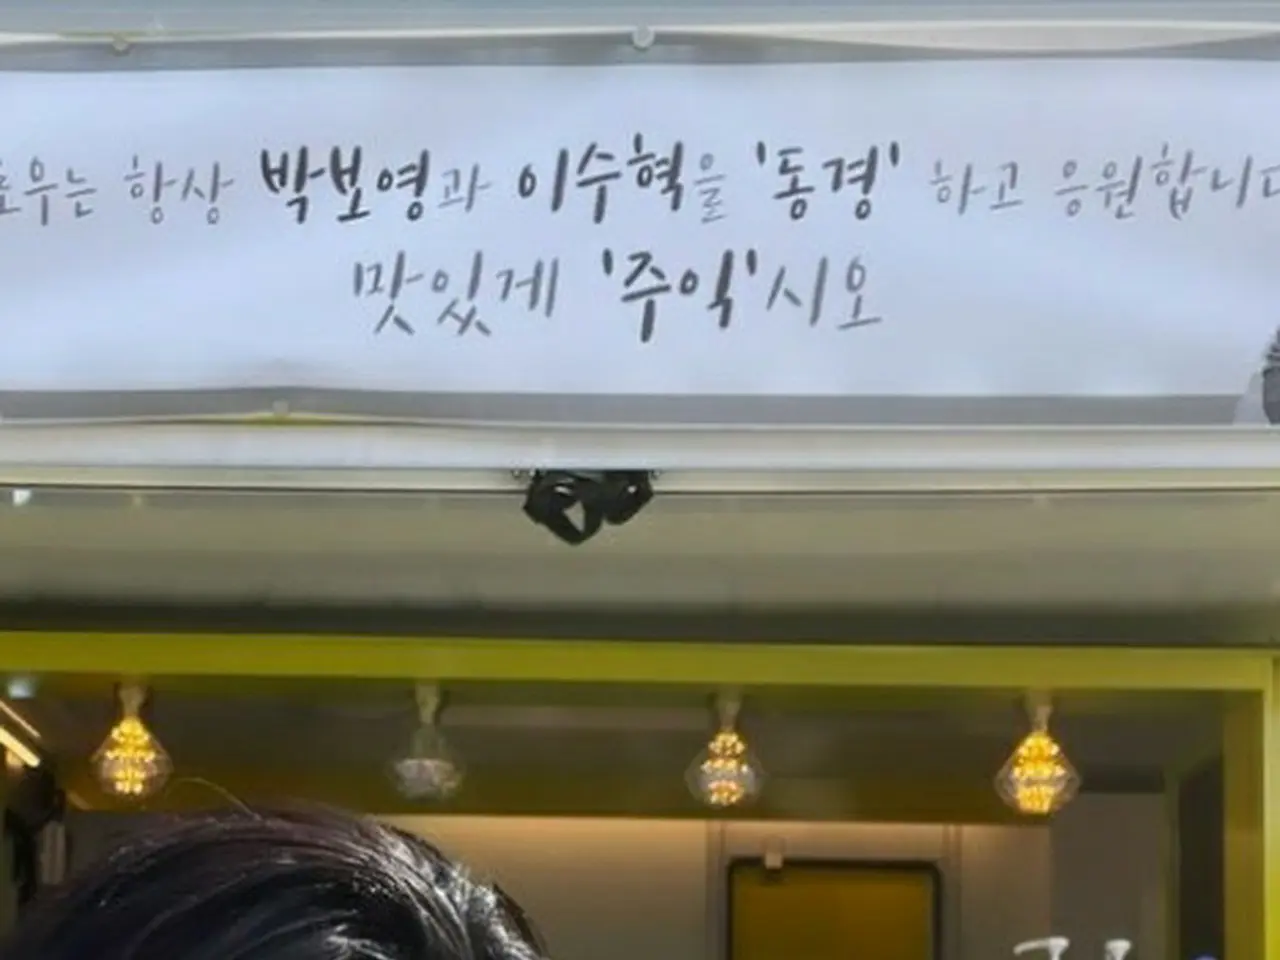 우는 항상 박보영과 이수혁을 '동경' 하고 응원합니다
맛있게 '주익'시오